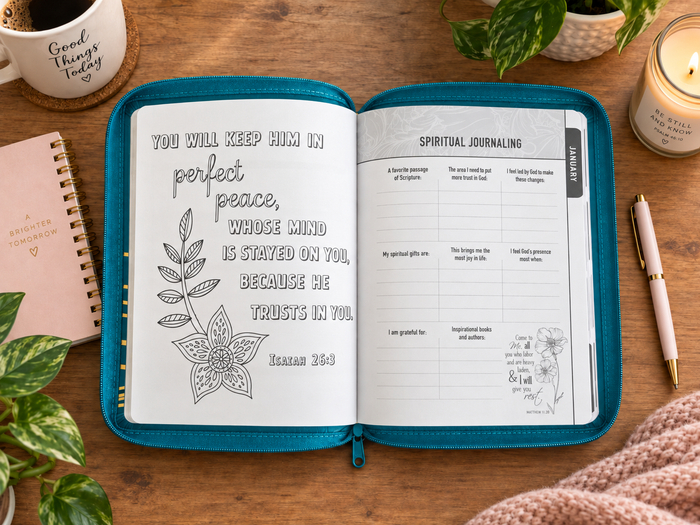 Good
Things
Today
A
BRIGHTER
TOMORROW
YOU WILL KEEP HIM IN
perfect
peace,
WHOSE MIND
IS STAYED ON YOU,
BECAUSE HE
TRUSTS IN YOU.
ISAIAH 26:3
SPIRITUAL JOURNALING
JANUARY
A favorite passage
of Scripture:
The area I need to put
more trust in God:
I feel led by God to make
these changes:
My spiritual gifts are:
This brings me the
most joy in life:
I feel God's presence
most when:
I am grateful for:
Inspirational books
and authors:
Come to
Me, all
you who labor
and are heavy
laden,
& I will
give you
rest.
MATTHEW 11:28
BE STILL
AND KNOW
PSALM 46:10